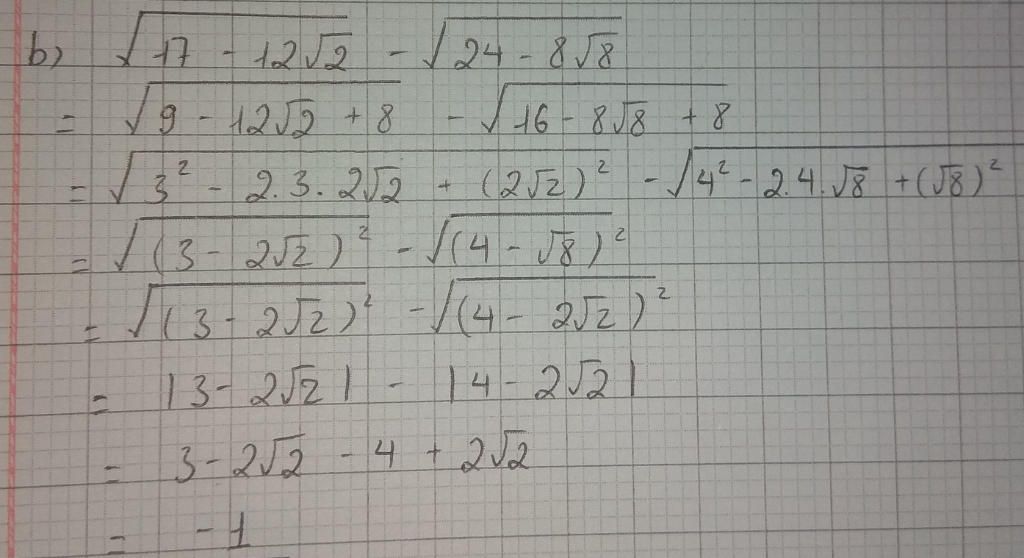 b) √(17 - 12√2) - √(24 - 8√8)
= √(9 - 12√2 + 8) - √(16 - 8√8 + 8)
= √(3² - 2.3.2√2 + (2√2)²) - √(4² - 2.4.√8 + (√8)²)
= √((3 - 2√2)²) - √((4 - √8)²)
= √((3 - 2√2)²) - √((4 - 2√2)²)
= |3 - 2√2| - |4 - 2√2|
= 3 - 2√2 - 4 + 2√2
= -1